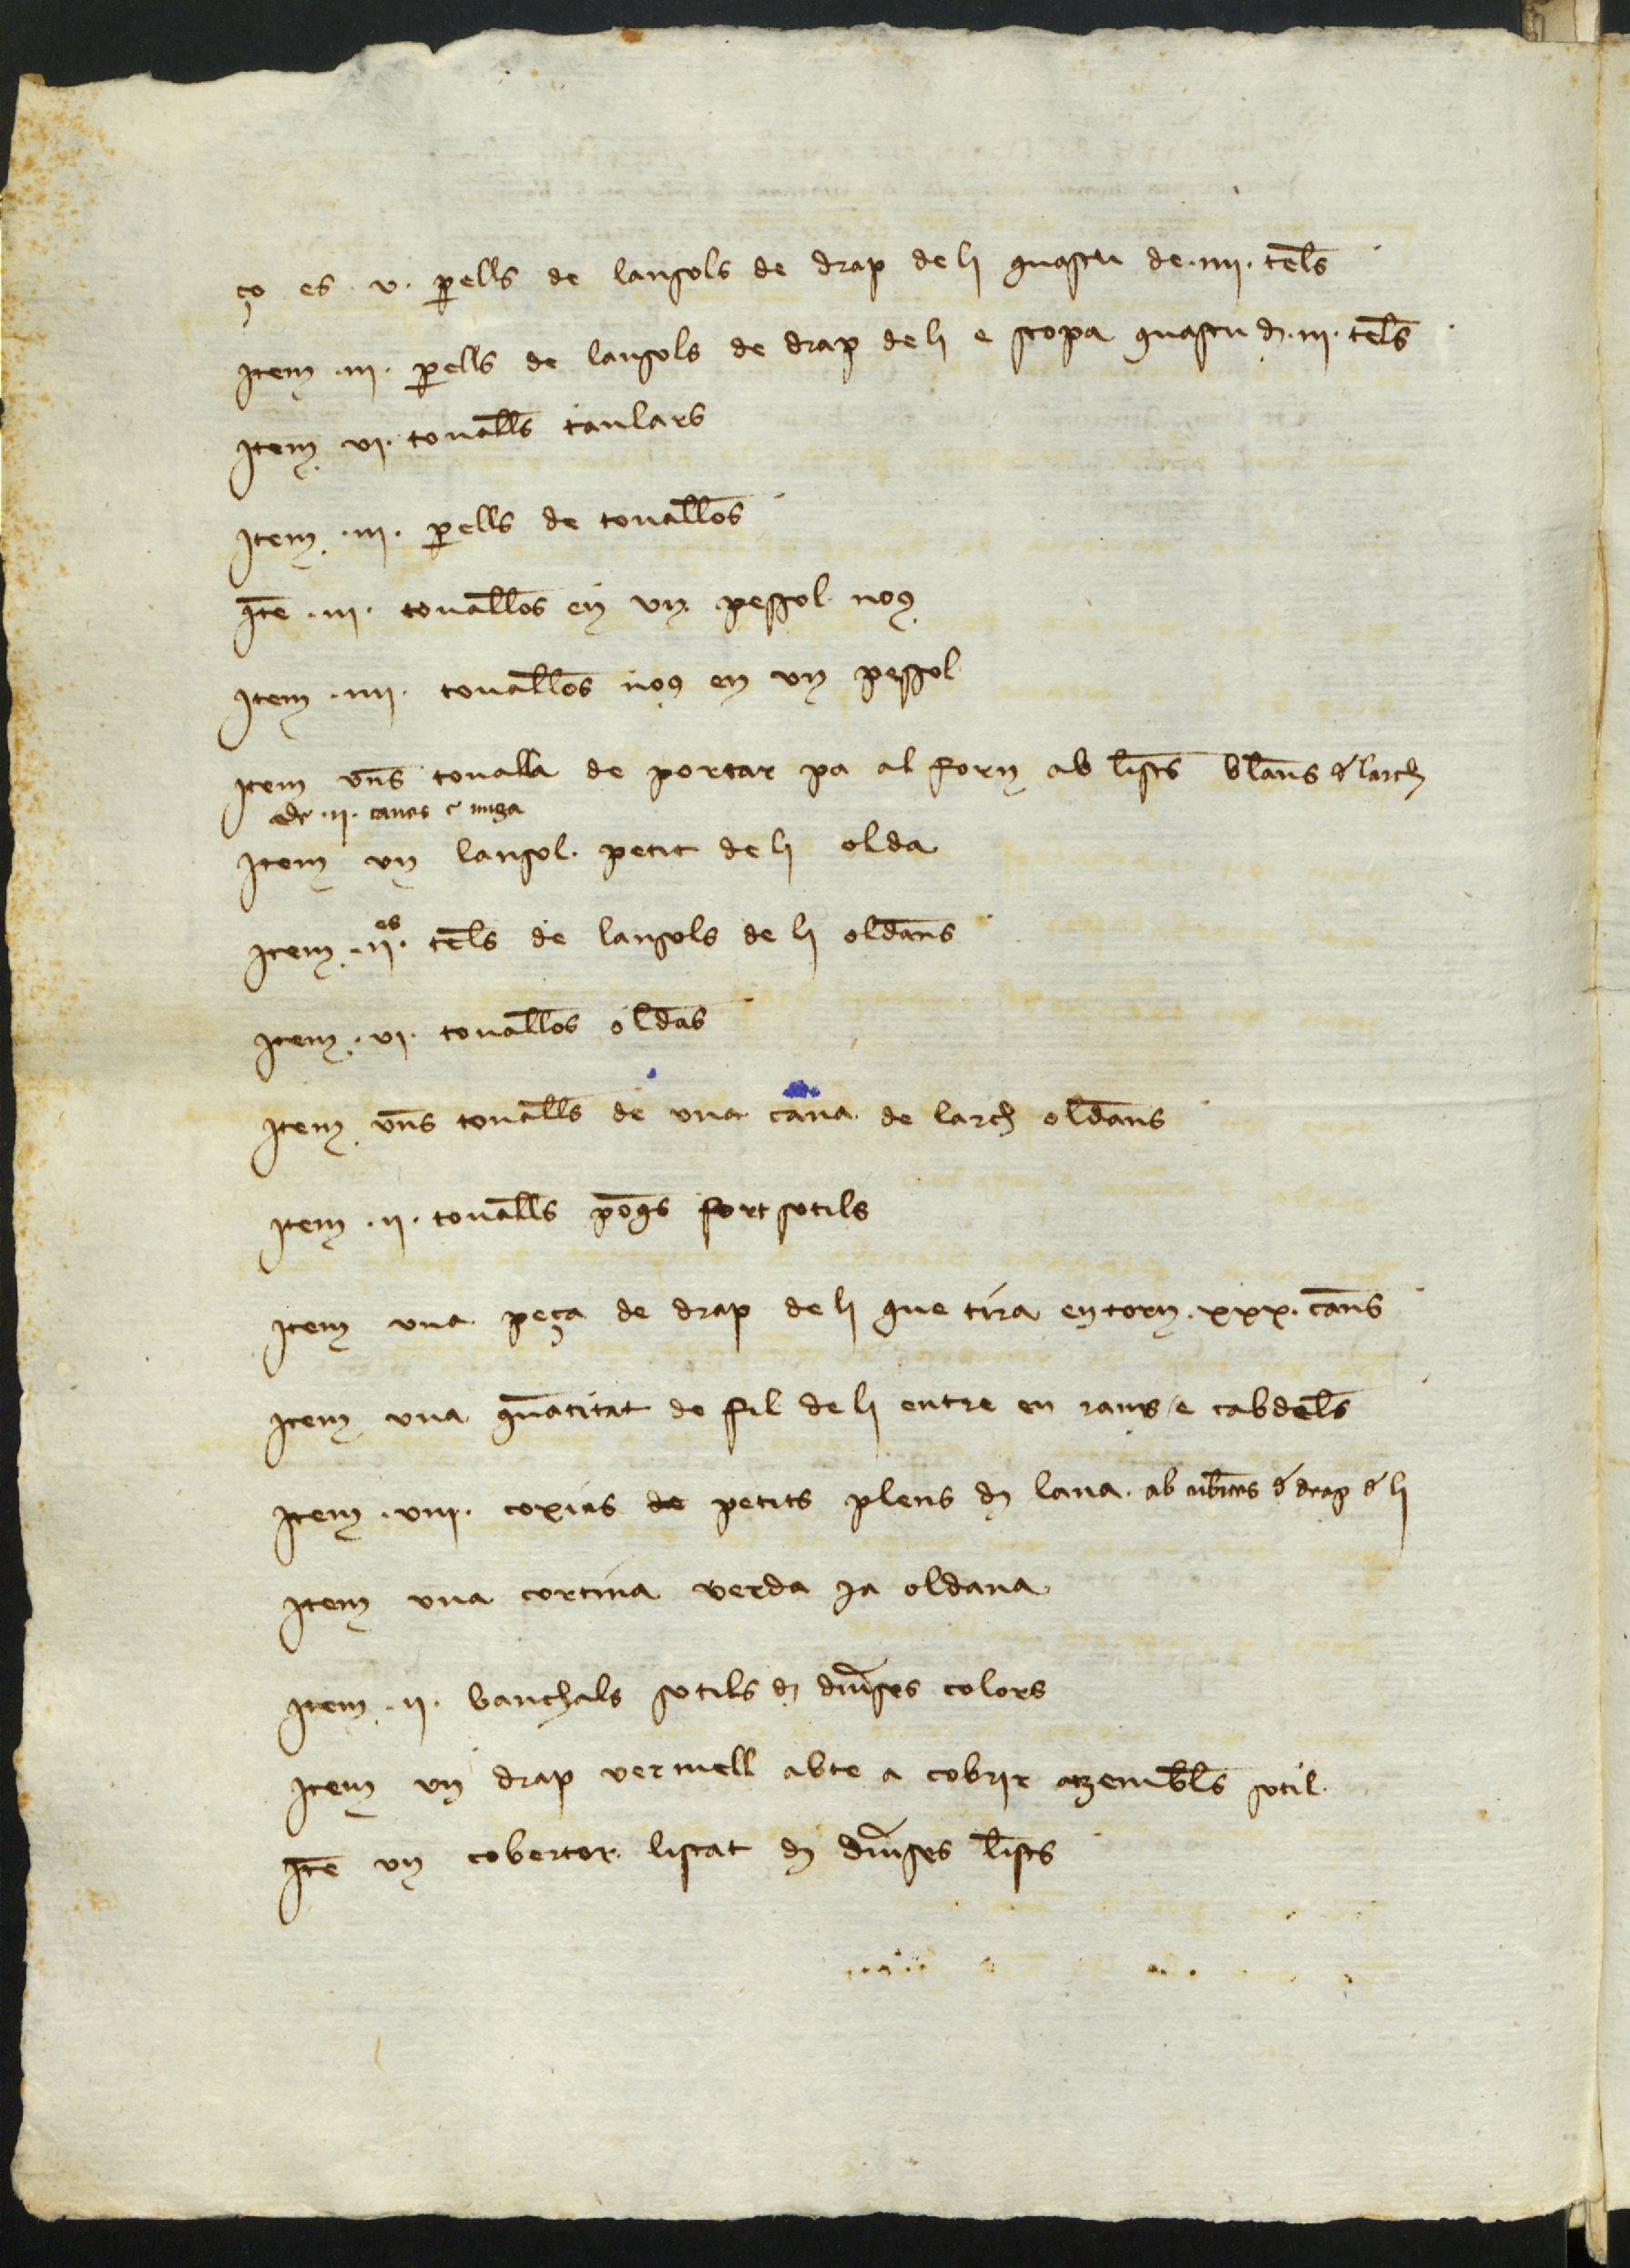 ço es .v. pells de lansols de drap de li quascu de .iiii. tels
Item .iii. pells de lansols de drap de li e stopa quascu de .iii. tels
Item .vi. toualls taulars
Item .iii. pells de touallos
Ite .iii. touallos en vn pessol nous
Item .iiii. touallos nous en vn pessol
Item vns toualla de portar pa al forn ab lists blaus de larch
de .ii. canes e miga
Item vn lansol petit de li olda
Item .iies. tels de lansols de li oldans
Item .vi. touallos oldas
Item vns toualls de vna cana de larch oldans
Item .ii. toualls pogs fort sotils
Item vna peça de drap de li que tira entorn .xxx. cans
Item vna quatitat de fil de li entre en rams e cabdels
Item .viii. coxins de petits plens de lana ab de drap de li
Item vna cortina verda ja oldana
Item .ii. banchals sotils de diuses colors
Item vn drap vermell abte a cobrir atzembls sotil
Ite vn cobertor listat de diuses lists